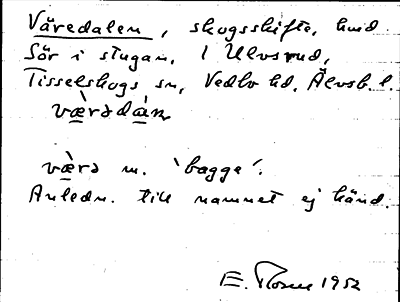 Väredalen, skogsskifte, hmd
Sör i stugan, 1 Ulvsrud,
Tisselskogs sn, Vedbo hd, Älvsb. l.
væ̀rədàn
væ̀rə m. 'bagge'.
Anledn. till namnet ej känd.
E. 1952